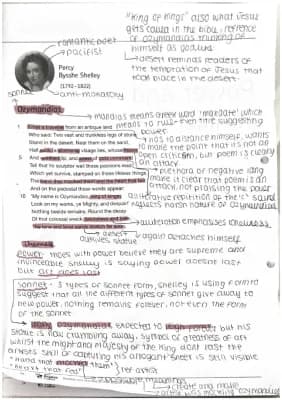 "King of Kings" also what Jesus
gets called in the bible, reference
of ozymandias thinking of
himself as godlike
romantic poet
pacifist
desert reminds readers of
the temptation of Jesus that
took place in the desert.
Percy
Bysshe Shelley
(1792-1822)
sonnet
anti-monarchy
Ozymandias
mandias means greek word 'mandate' which
means to rule - then this suggesting
power
I met a traveller from an antique land
Who said: Two vast and trunkless legs of stone
Stand in the desert. Near them on the sand,
Half sunk, a shattered visage lies, whose frown
And wrinkled lip, and sneer of cold command
Tell that its sculptor well those passions read
Which yet survive, stamped on these lifeless things,
The hand that mocked them and the heart that fed.
And on the pedestal these words appear:
"My name is Ozymandias, king of kings:
Look on my works, ye Mighty, and despair!"
Nothing beside remains. Round the decay
Of that colossal wreck, boundless and bare
The lone and level sands stretch far away.
has to distance himself, wants
to make the point that it's not an
open criticism, but poem is clearly
an attack
plethora of negative lang
make it clear that poem is an
attack, not praising the power
alliterative repetition of the 'c' sound
reflects harsh nature of Ozymandias
alliteration emphasises loneliness
desert
outlives statue
again attacks himself
Themes
power: those with power believe they are supreme and
invincible shelley is saying power doesnt last
but art does last
sonnet - 3 types of sonnet form, shelley is using form to
suggest that all the different types of sonnet give away to
new power, nothing remains forever, not even the form
of the sonnet
Irony Ozymandias, expected to reign forever but his
statue is now crumbling away. Symbol of greatness of art
whilst the might and majesty of the king dont last the
artists skill of capturing his arrogant sneer is still visible
"hand that mocked them"
"heart that fed"
ref artist
create and make
artist was mocking ozymandias